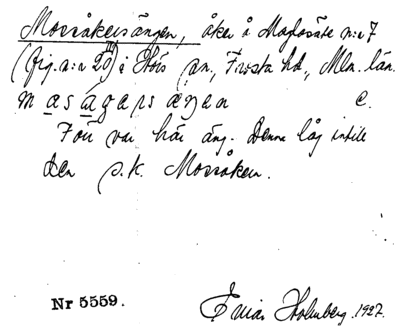 Mossåkersängen, åker å Maglasäte n:r 7
(fig. n:r 20 III) i Hörs sn, Frosta hd., Mlm. län.
masågarsäŋen c.
Förr var här äng. Denna låg intill
den s.k. Mossåkern.
Nr 5559. Einar Holmberg. 1927.